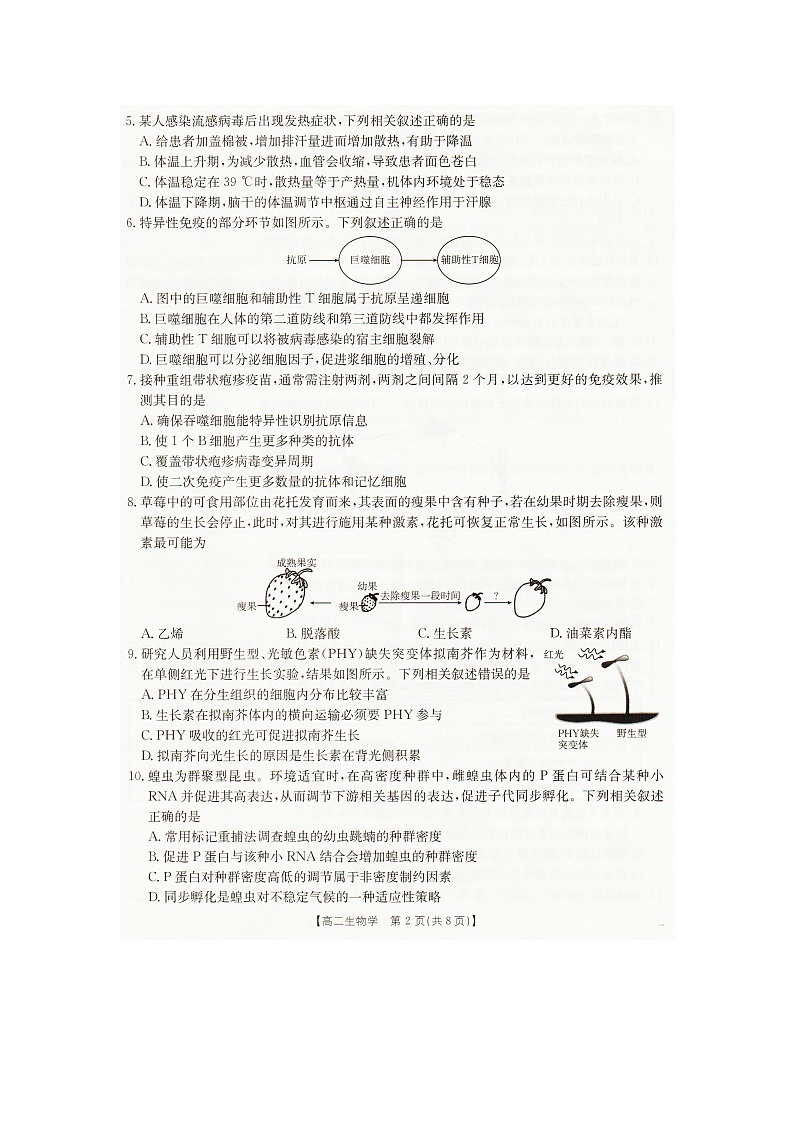 5. 某人感染流感病毒后出现发热症状,下列相关叙述正确的是
A. 给患者加盖棉被,增加排汗量进而增加散热,有助于降温
B. 体温上升期,为减少散热,血管会收缩,导致患者面色苍白
C. 体温稳定在 39 ℃时,散热量等于产热量,机体内环境处于稳态
D. 体温下降期,脑干的体温调节中枢通过自主神经作用于汗腺
6. 特异性免疫的部分环节如图所示。下列叙述正确的是
抗原 巨噬细胞 辅助性T细胞
A. 图中的巨噬细胞和辅助性 T 细胞属于抗原呈递细胞
B. 巨噬细胞在人体的第二道防线和第三道防线中都发挥作用
C. 辅助性 T 细胞可以将被病毒感染的宿主细胞裂解
D. 巨噬细胞可以分泌细胞因子,促进浆细胞的增殖、分化
7. 接种重组带状疱疹疫苗,通常需注射两剂,两剂之间间隔 2 个月,以达到更好的免疫效果,推
测其目的是
A. 确保吞噬细胞能特异性识别抗原信息
B. 使 1 个 B 细胞产生更多种类的抗体
C. 覆盖带状疱疹病毒变异周期
D. 使二次免疫产生更多数量的抗体和记忆细胞
8. 草莓中的可食用部位由花托发育而来,其表面的瘦果中含有种子,若在幼果时期去除瘦果,则
草莓的生长会停止,此时,对其进行施用某种激素,花托可恢复正常生长,如图所示。该种激
素最可能为
成熟果实
幼果
瘦果 瘦果 去除瘦果一段时间 ?
A. 乙烯 B. 脱落酸 C. 生长素 D. 油菜素内酯
9. 研究人员利用野生型、光敏色素(PHY)缺失突变体拟南芥作为材料,
在单侧红光下进行生长实验,结果如图所示。下列相关叙述错误的是
A. PHY 在分生组织的细胞内分布比较丰富
B. 生长素在拟南芥体内的横向运输必须要 PHY 参与
C. PHY 吸收的红光可促进拟南芥生长
D. 拟南芥向光生长的原因是生长素在背光侧积累
红光
PHY缺失 野生型
突变体
10. 蝗虫为群聚型昆虫。环境适宜时,在高密度种群中,雌蝗虫体内的 P 蛋白可结合某种小
RNA 并促进其高表达,从而调节下游相关基因的表达,促进子代同步孵化。下列相关叙述
正确的是
A. 常用标记重捕法调查蝗虫的幼虫跳蝻的种群密度
B. 促进 P 蛋白与该种小 RNA 结合会增加蝗虫的种群密度
C. P 蛋白对种群密度高低的调节属于非密度制约因素
D. 同步孵化是蝗虫对不稳定气候的一种适应性策略
【高二生物学 第 2 页(共 8 页)】